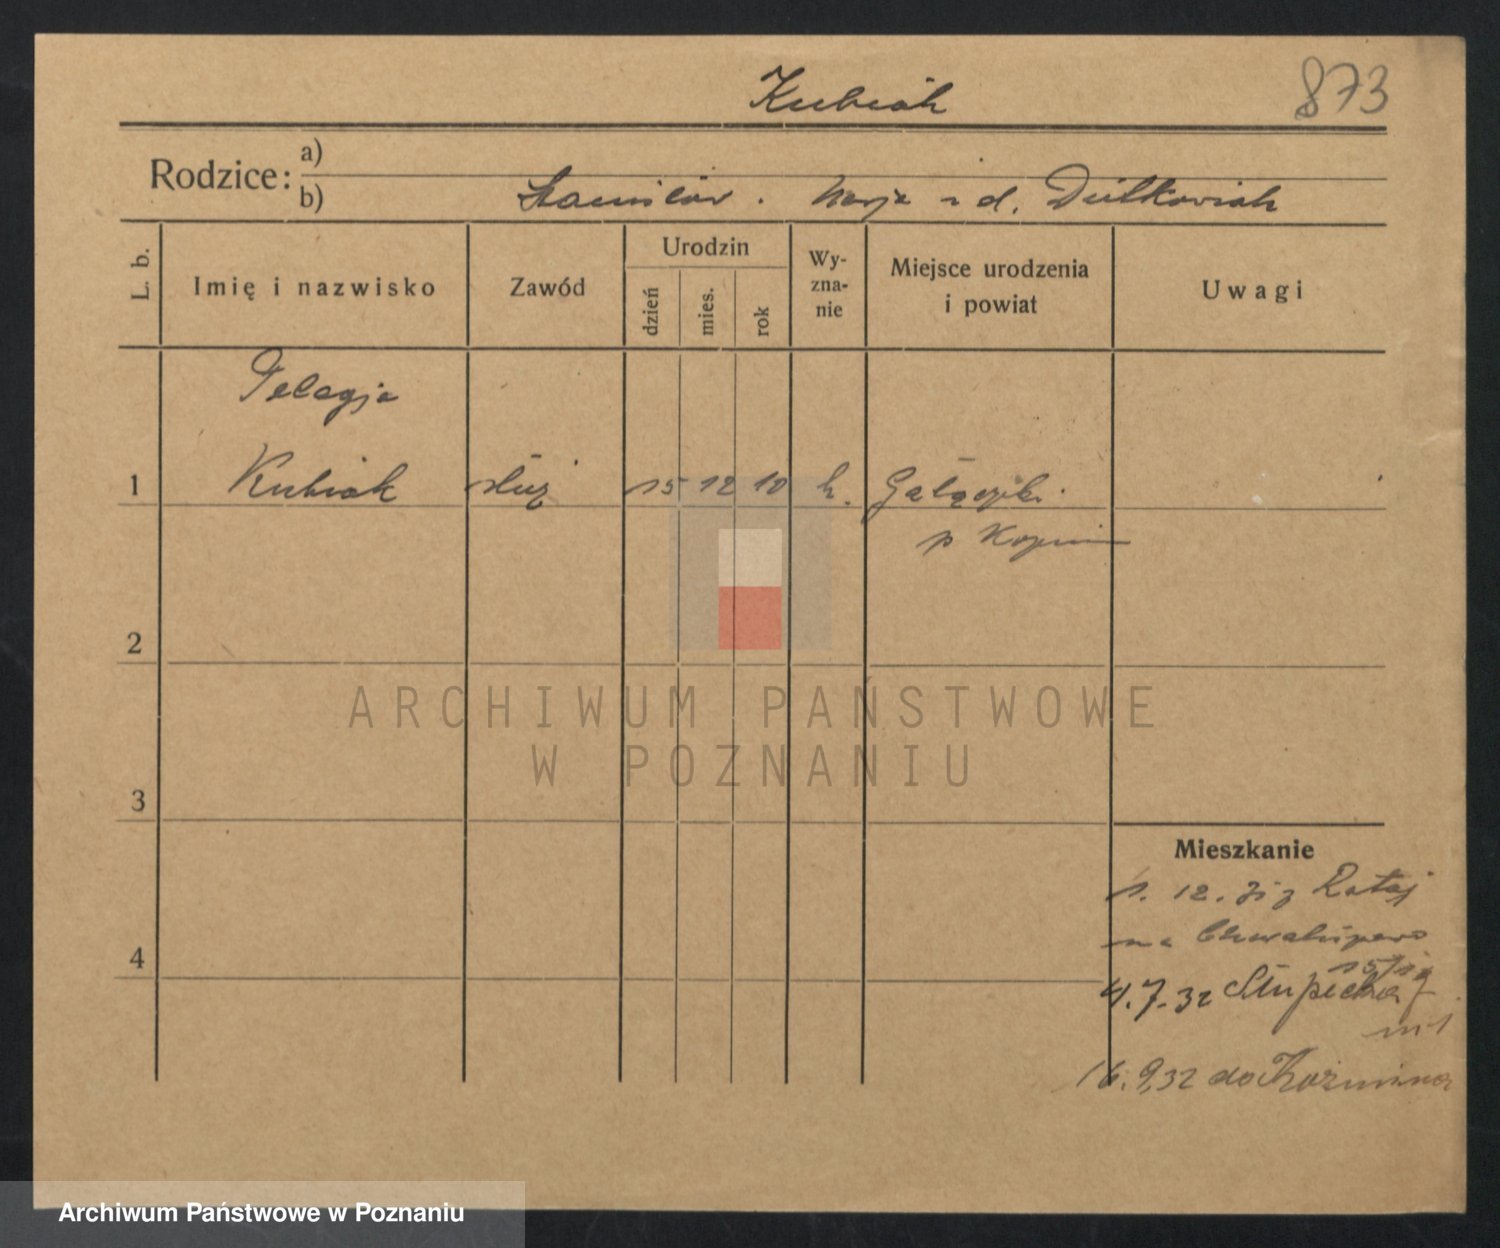 Kubiak
873
Rodzice:
a)
b) Stanisław. Marja z d. Dutkowiak
L. b.
Imię i nazwisko
Zawód
Urodzin
dzień
mies.
rok
Wy-
zna-
nie
Miejsce urodzenia
i powiat
Uwagi
Pelagja
1 Kubiak służ 15 12 10 k. Gałązki
p
2
3
4
Mieszkanie
1. 12. 31 z Rataj
na
4.7.32 Słupecka
m 1
16.9.32 do Koźmina
ARCHIWUM PAŃSTWOWE
W POZNANIU
Archiwum Państwowe w Poznaniu